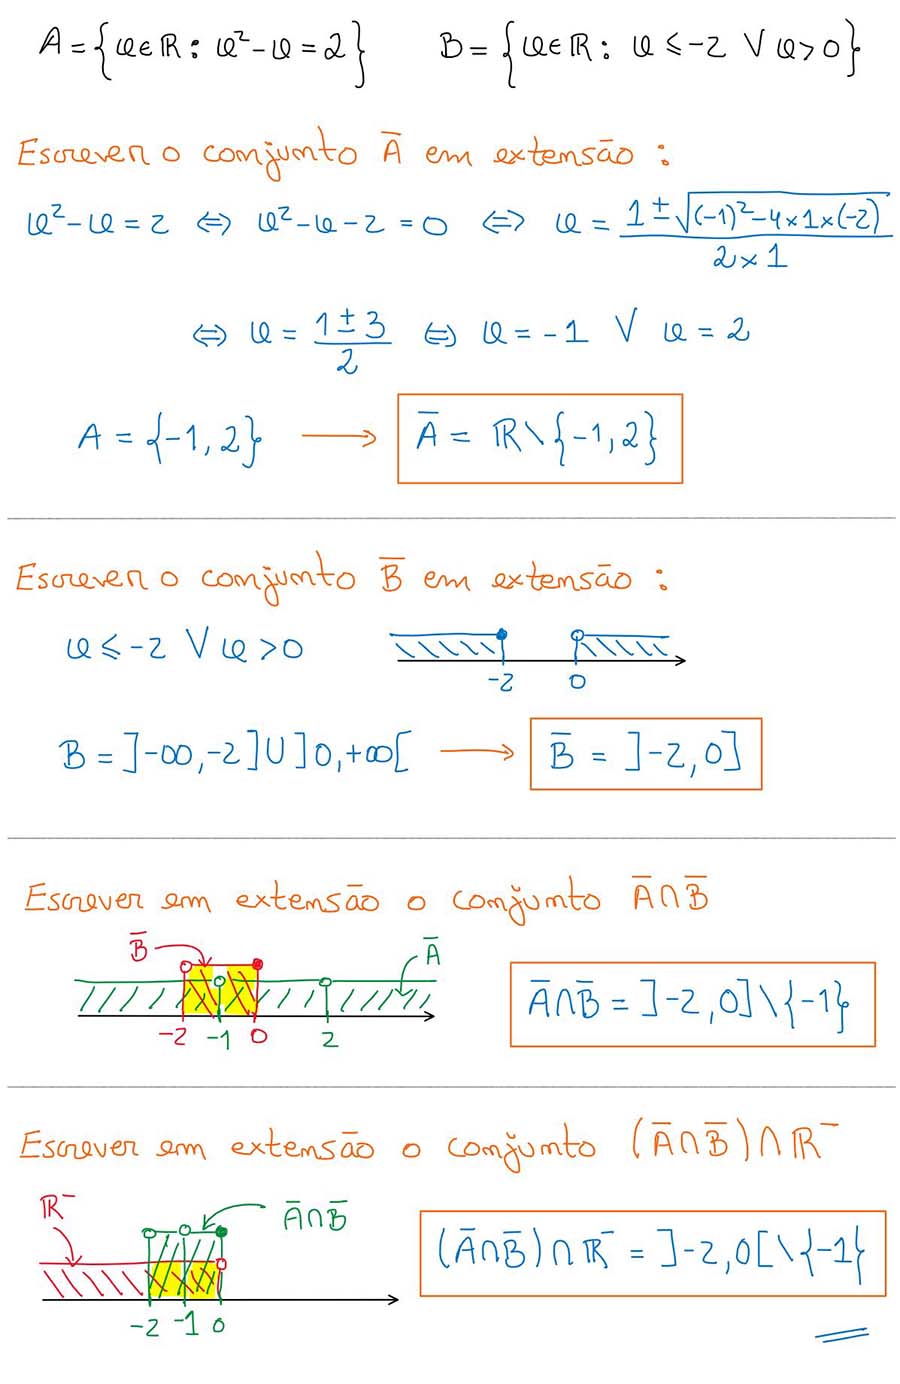 A = {x∈ℝ: x²-x=2} B = {x∈ℝ: x ≤ -2 ∨ x>0}
Escrever o conjunto Ā em extensão :
x²-x=2 ⇔ x²-x-2=0 ⇔ x = (1±√((-1)²-4×1×(-2)))/(2×1)
⇔ x = (1±3)/2 ⇔ x = -1 ∨ x = 2
A = {-1, 2} → Ā = ℝ\{-1, 2}
Escrever o conjunto B̄ em extensão :
x ≤ -2 ∨ x > 0
-2 0
B = ]-∞, -2] ∪ ]0, +∞[ → B̄ = ]-2, 0]
Escrever em extensão o conjunto Ā∩B̄
B̄ Ā
Ā∩B̄ = ]-2, 0] \ {-1}
-2 -1 0 2
Escrever em extensão o conjunto (Ā∩B̄)∩ℝ⁻
ℝ⁻ Ā∩B̄
(Ā∩B̄)∩ℝ⁻ = ]-2, 0[ \ {-1}
-2 -1 0